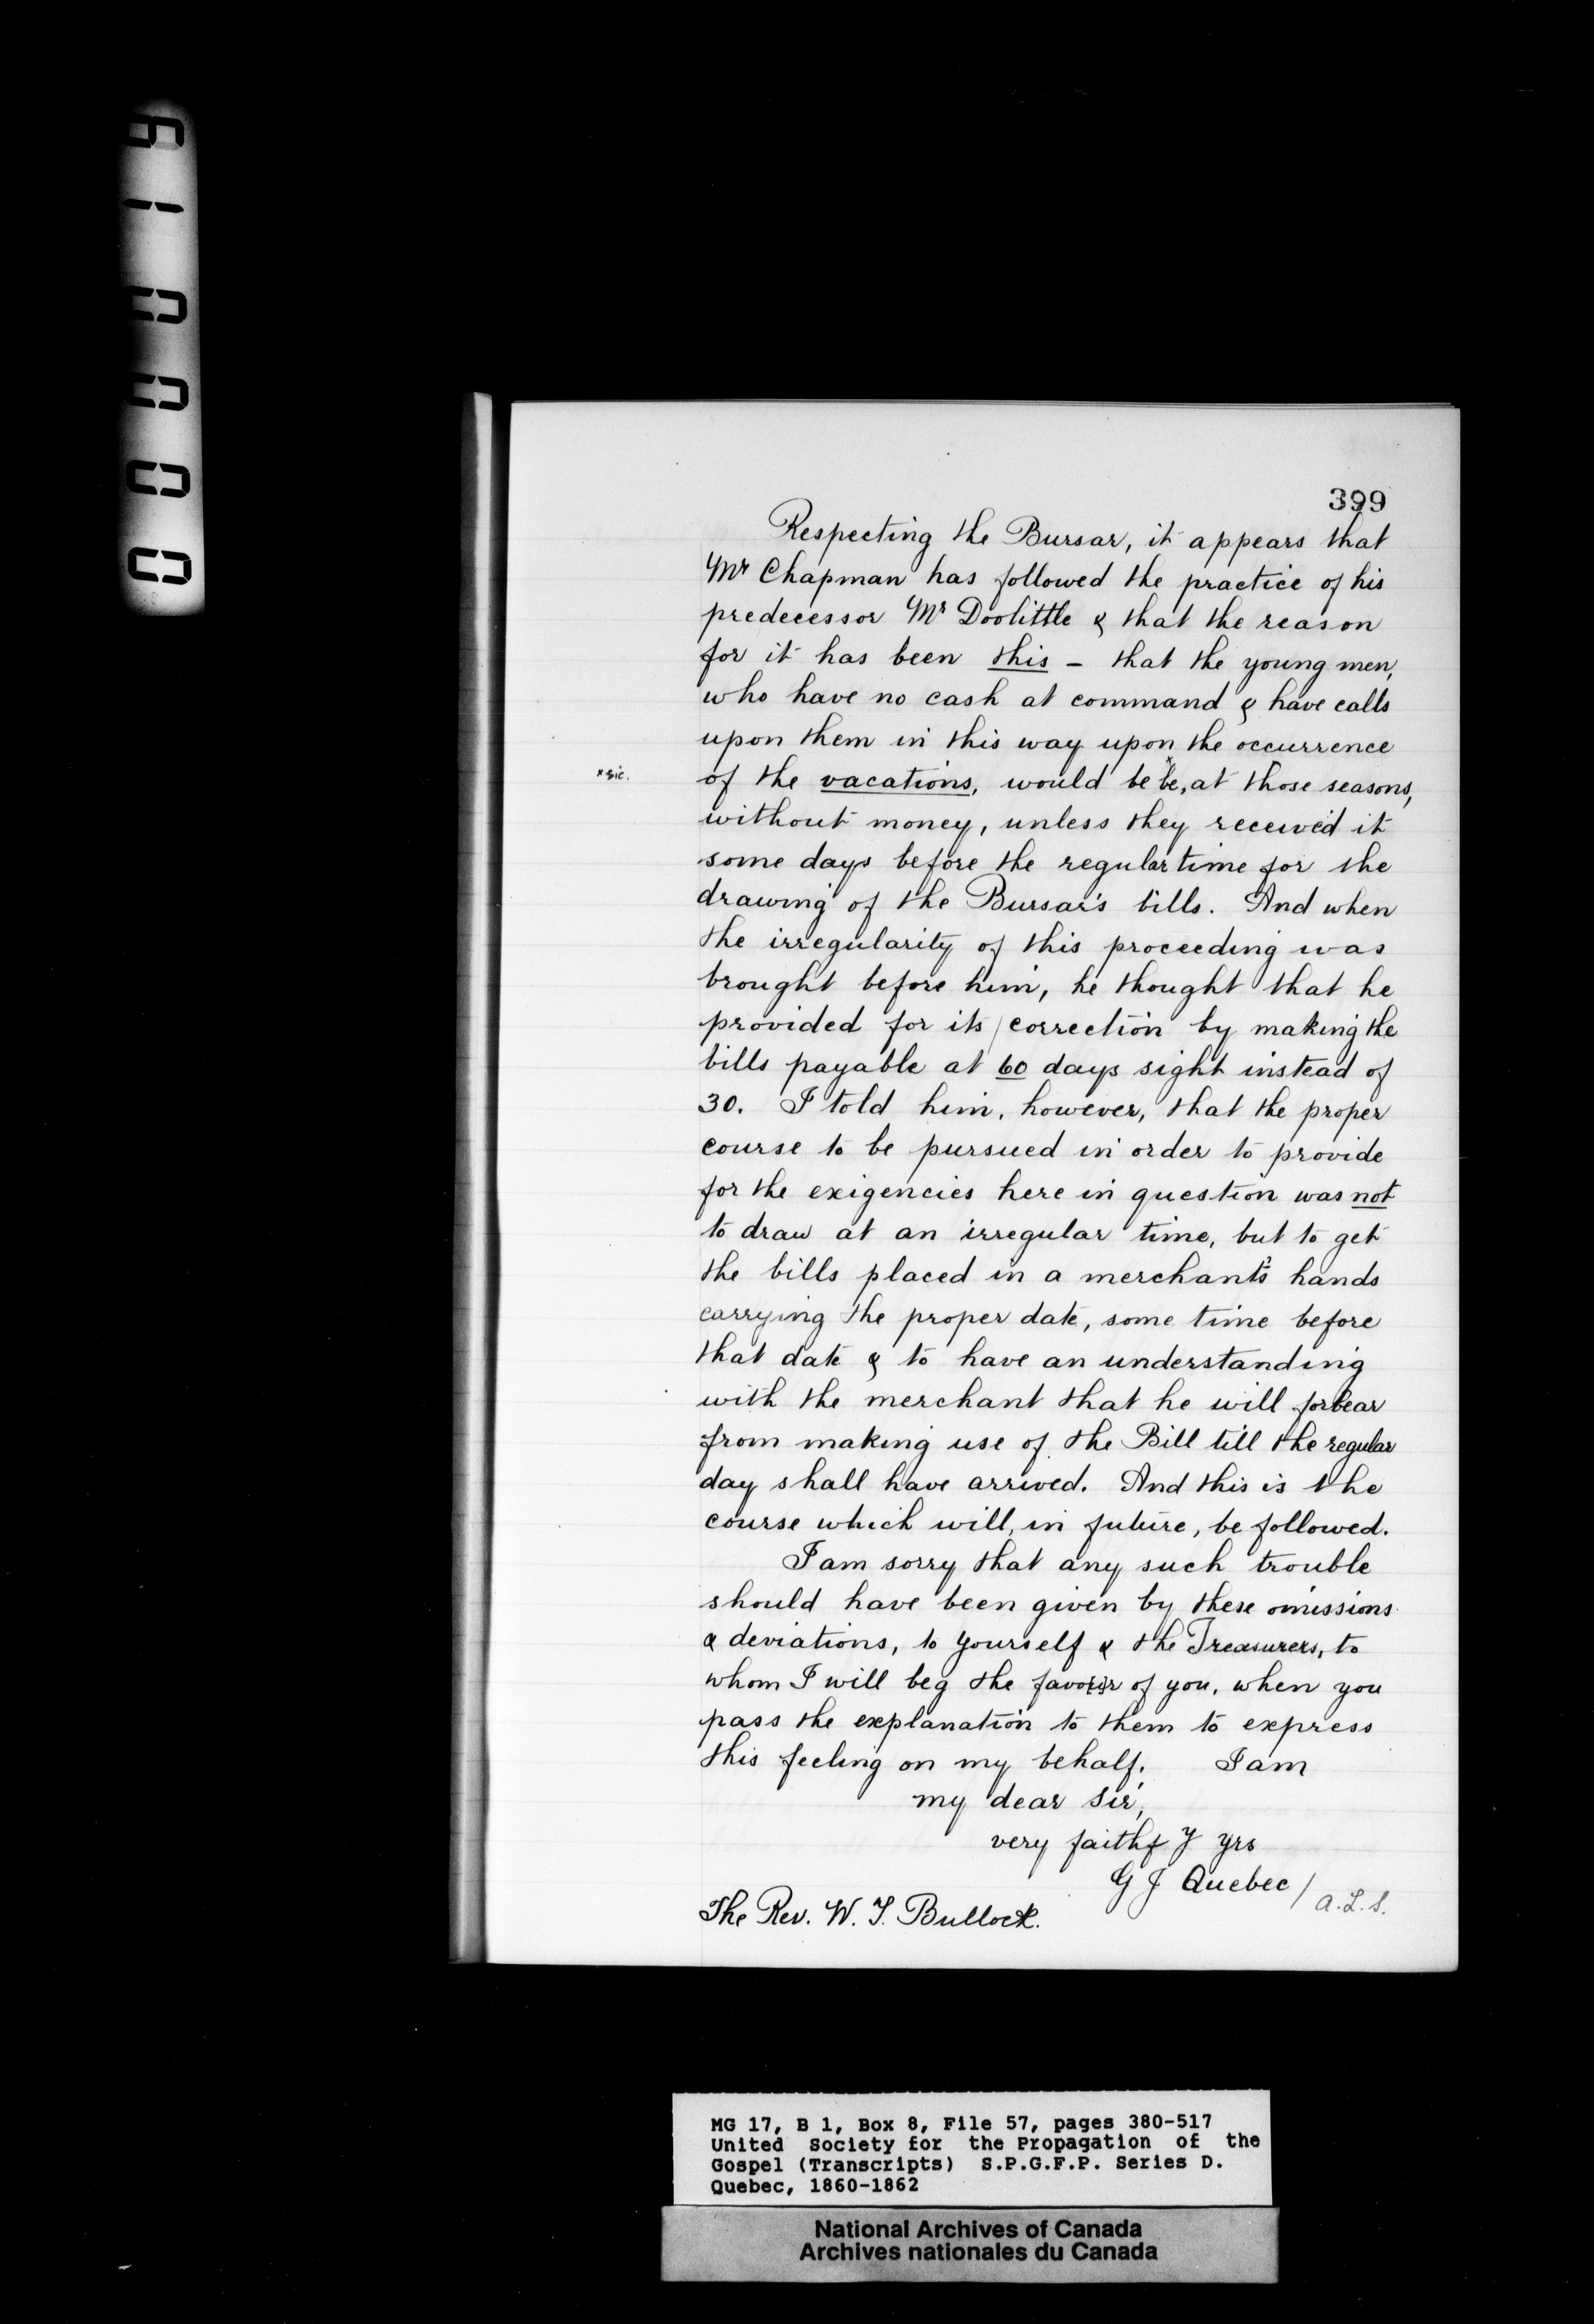 610000
399
Respecting the Bursar, it appears that
Mr Chapman has followed the practice of his
predecessor Mr Doolittle & that the reason
for it has been this – that the young men,
who have no cash at command & have calls
upon them in this way upon the occurrence
x sic. of the vacations, would be xbe, at those seasons,
without money, unless they received it
some days before the regular time for the
drawing of the Bursar's bills. And when
the irregularity of this proceeding was
brought before him, he thought that he
provided for its / correction by making the
bills payable at 60 days sight instead of
30. I told him, however, that the proper
course to be pursued in order to provide
for the exigencies here in question was not
to draw at an irregular time, but to get
the bills placed in a merchant's hands
carrying the proper date, some time before
that date & to have an understanding
with the merchant that he will forbear
from making use of the Bill till the regular
day shall have arrived. And this is the
course which will, in future, be followed.
I am sorry that any such trouble
should have been given by these omissions
& deviations, to yourself & the Treasurers, to
whom I will beg the favour of you, when you
pass the explanation to them to express
this feeling on my behalf. I am
my dear Sir,
very faithfy yrs
G J Quebec /
a.L.S.
The Rev. W. T. Bullock.
MG 17, B 1, Box 8, File 57, pages 380-517
United Society for the Propagation of the
Gospel (Transcripts) S.P.G.F.P. Series D.
Quebec, 1860-1862
National Archives of Canada
Archives nationales du Canada